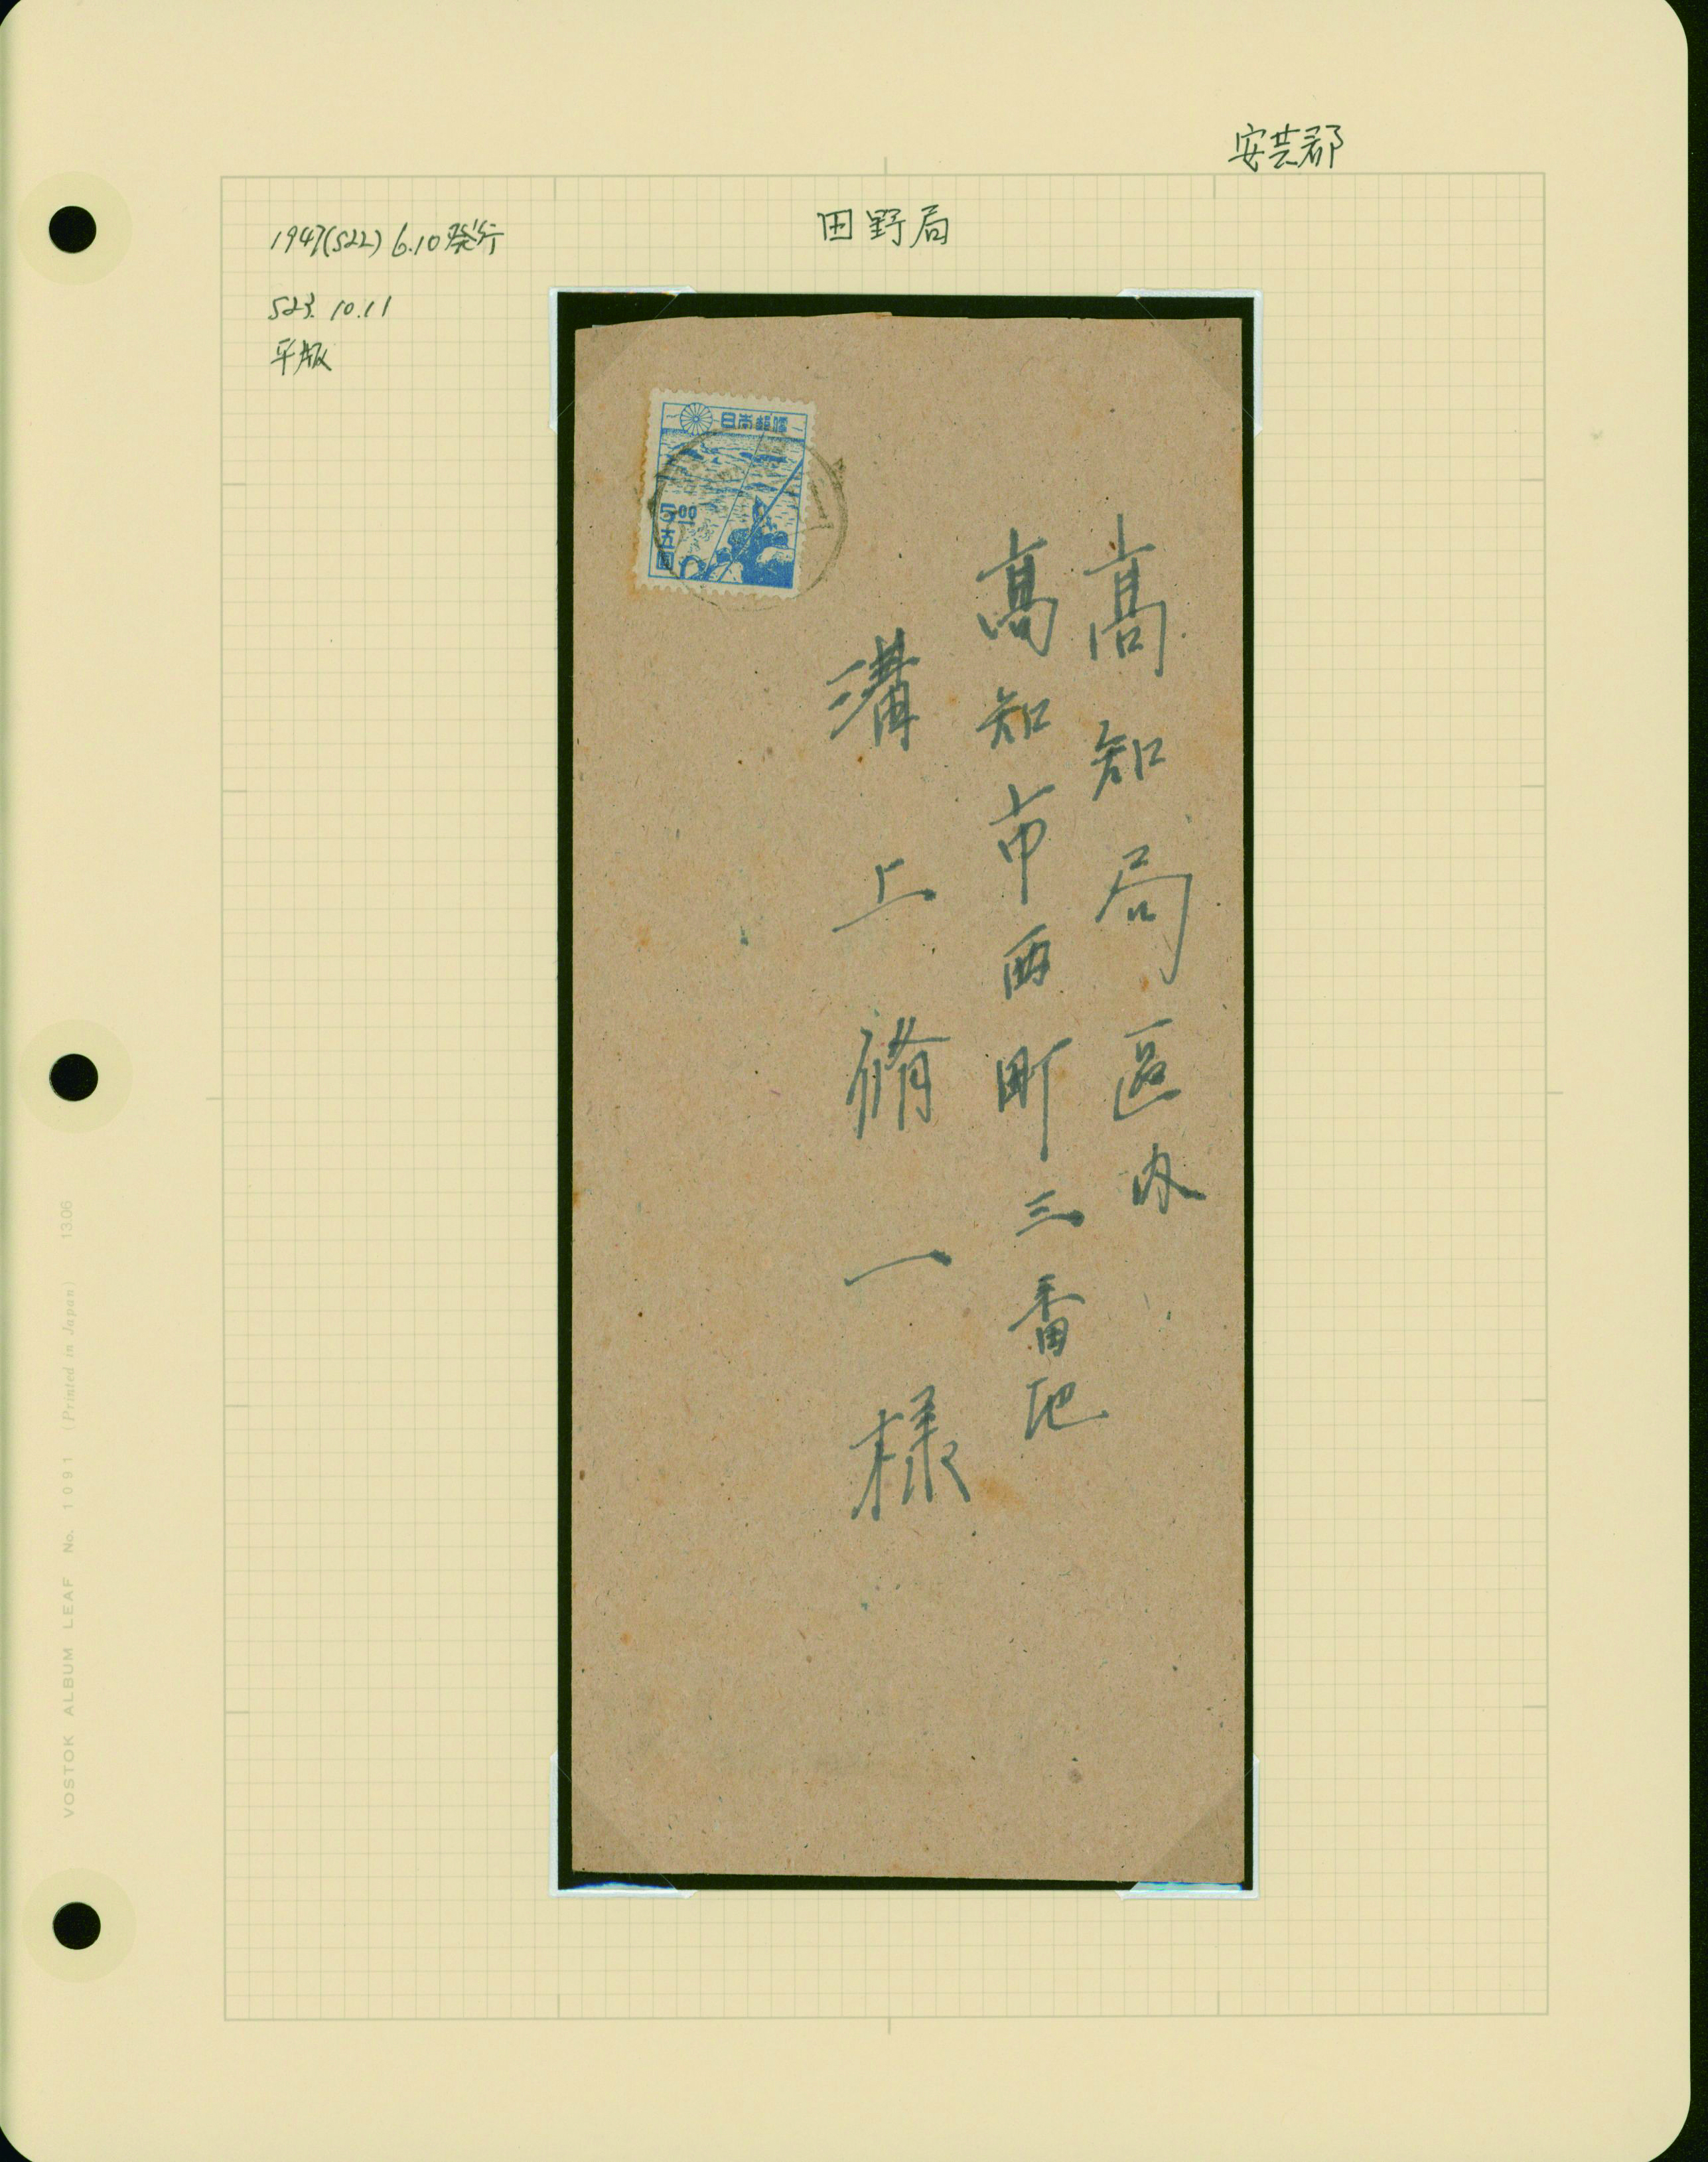 安芸郡
田野局
1947(S22) 6.10発行
S23. 10.11
平版
日本郵便
5.00
五圓
高知局區内
高知市西町三番地
溝上脩一様
VOSTOK ALBUM LEAF No. 1091 (Printed in Japan) 1306